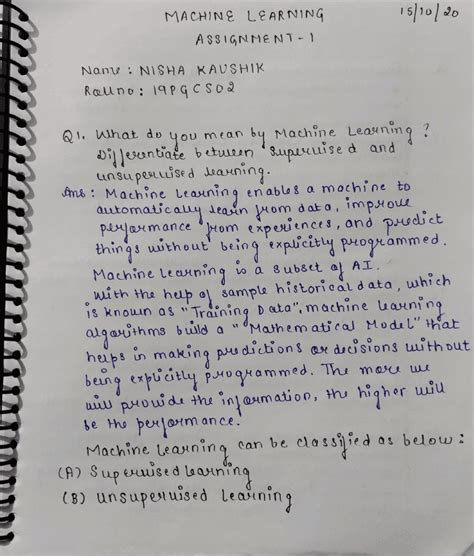 MACHINE LEARNING 15/10/20
ASSIGNMENT-1
Name : NISHA KAUSHIK
Rollno : 19PGCS02
Q1. What do you mean by Machine Learning ?
Differentiate between supervised and
unsupervised learning.
Ans : Machine Learning enables a machine to
automatically learn from data, improve
performance from experiences, and predict
things without being explicitly programmed.
Machine learning is a subset of AI.
With the help of sample historical data, which
is known as "Training Data", machine learning
algorithms build a "Mathematical Model" that
helps in making predictions or decisions without
being explicitly programmed. The more we
will provide the information, the higher will
be the performance.
Machine Learning can be classified as below :
(A) Supervised learning
(B) Unsupervised Learning